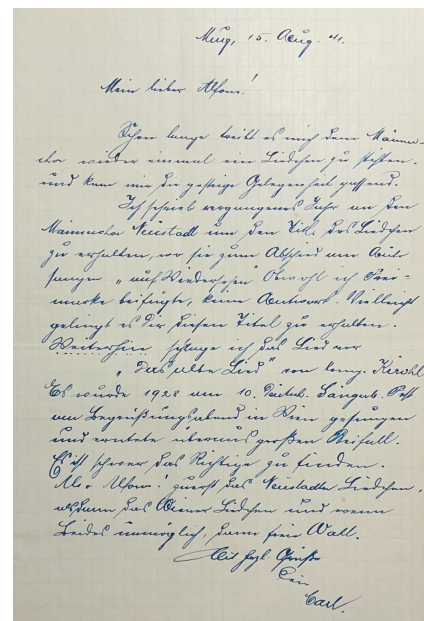 15. Aug. 41.
Mein lieber Alfons!
Schon lange treibt es mich dem Männer-
chor wieder einmal ein Liedchen zu stiften.
und kam mir die gestrige Gelegenheit passend.
Ich schrieb vergangenes Jahr an den
Männerchor Neustadt um den Titl. des Liedchen
zu erhalten, wo sie zum Abschied am Auto
sangen „auf Wiedersehen" Obwohl ich Frei-
marke beifügte, keine Antwort. Vielleicht
gelingt es Dir diesen Titel zu erhalten.
Weiterhin schlage ich das Lied vor
„Das alte Lied" von komp.
Es wurde 1928 am 10. Deutsch. Sängerb. Fest
am Begrüßungsabend in Wien gesungen
und erntete überaus großen Beifall.
Es ist schwer das Richtige zu finden.
Also Alfons! zuerst das Neustadter Liedchen,
alsdann das Wiener Liedchen und wenn
Beides unmöglich, dann freie Wahl.
Mit hrzl. Grüße
Dein
Carl.